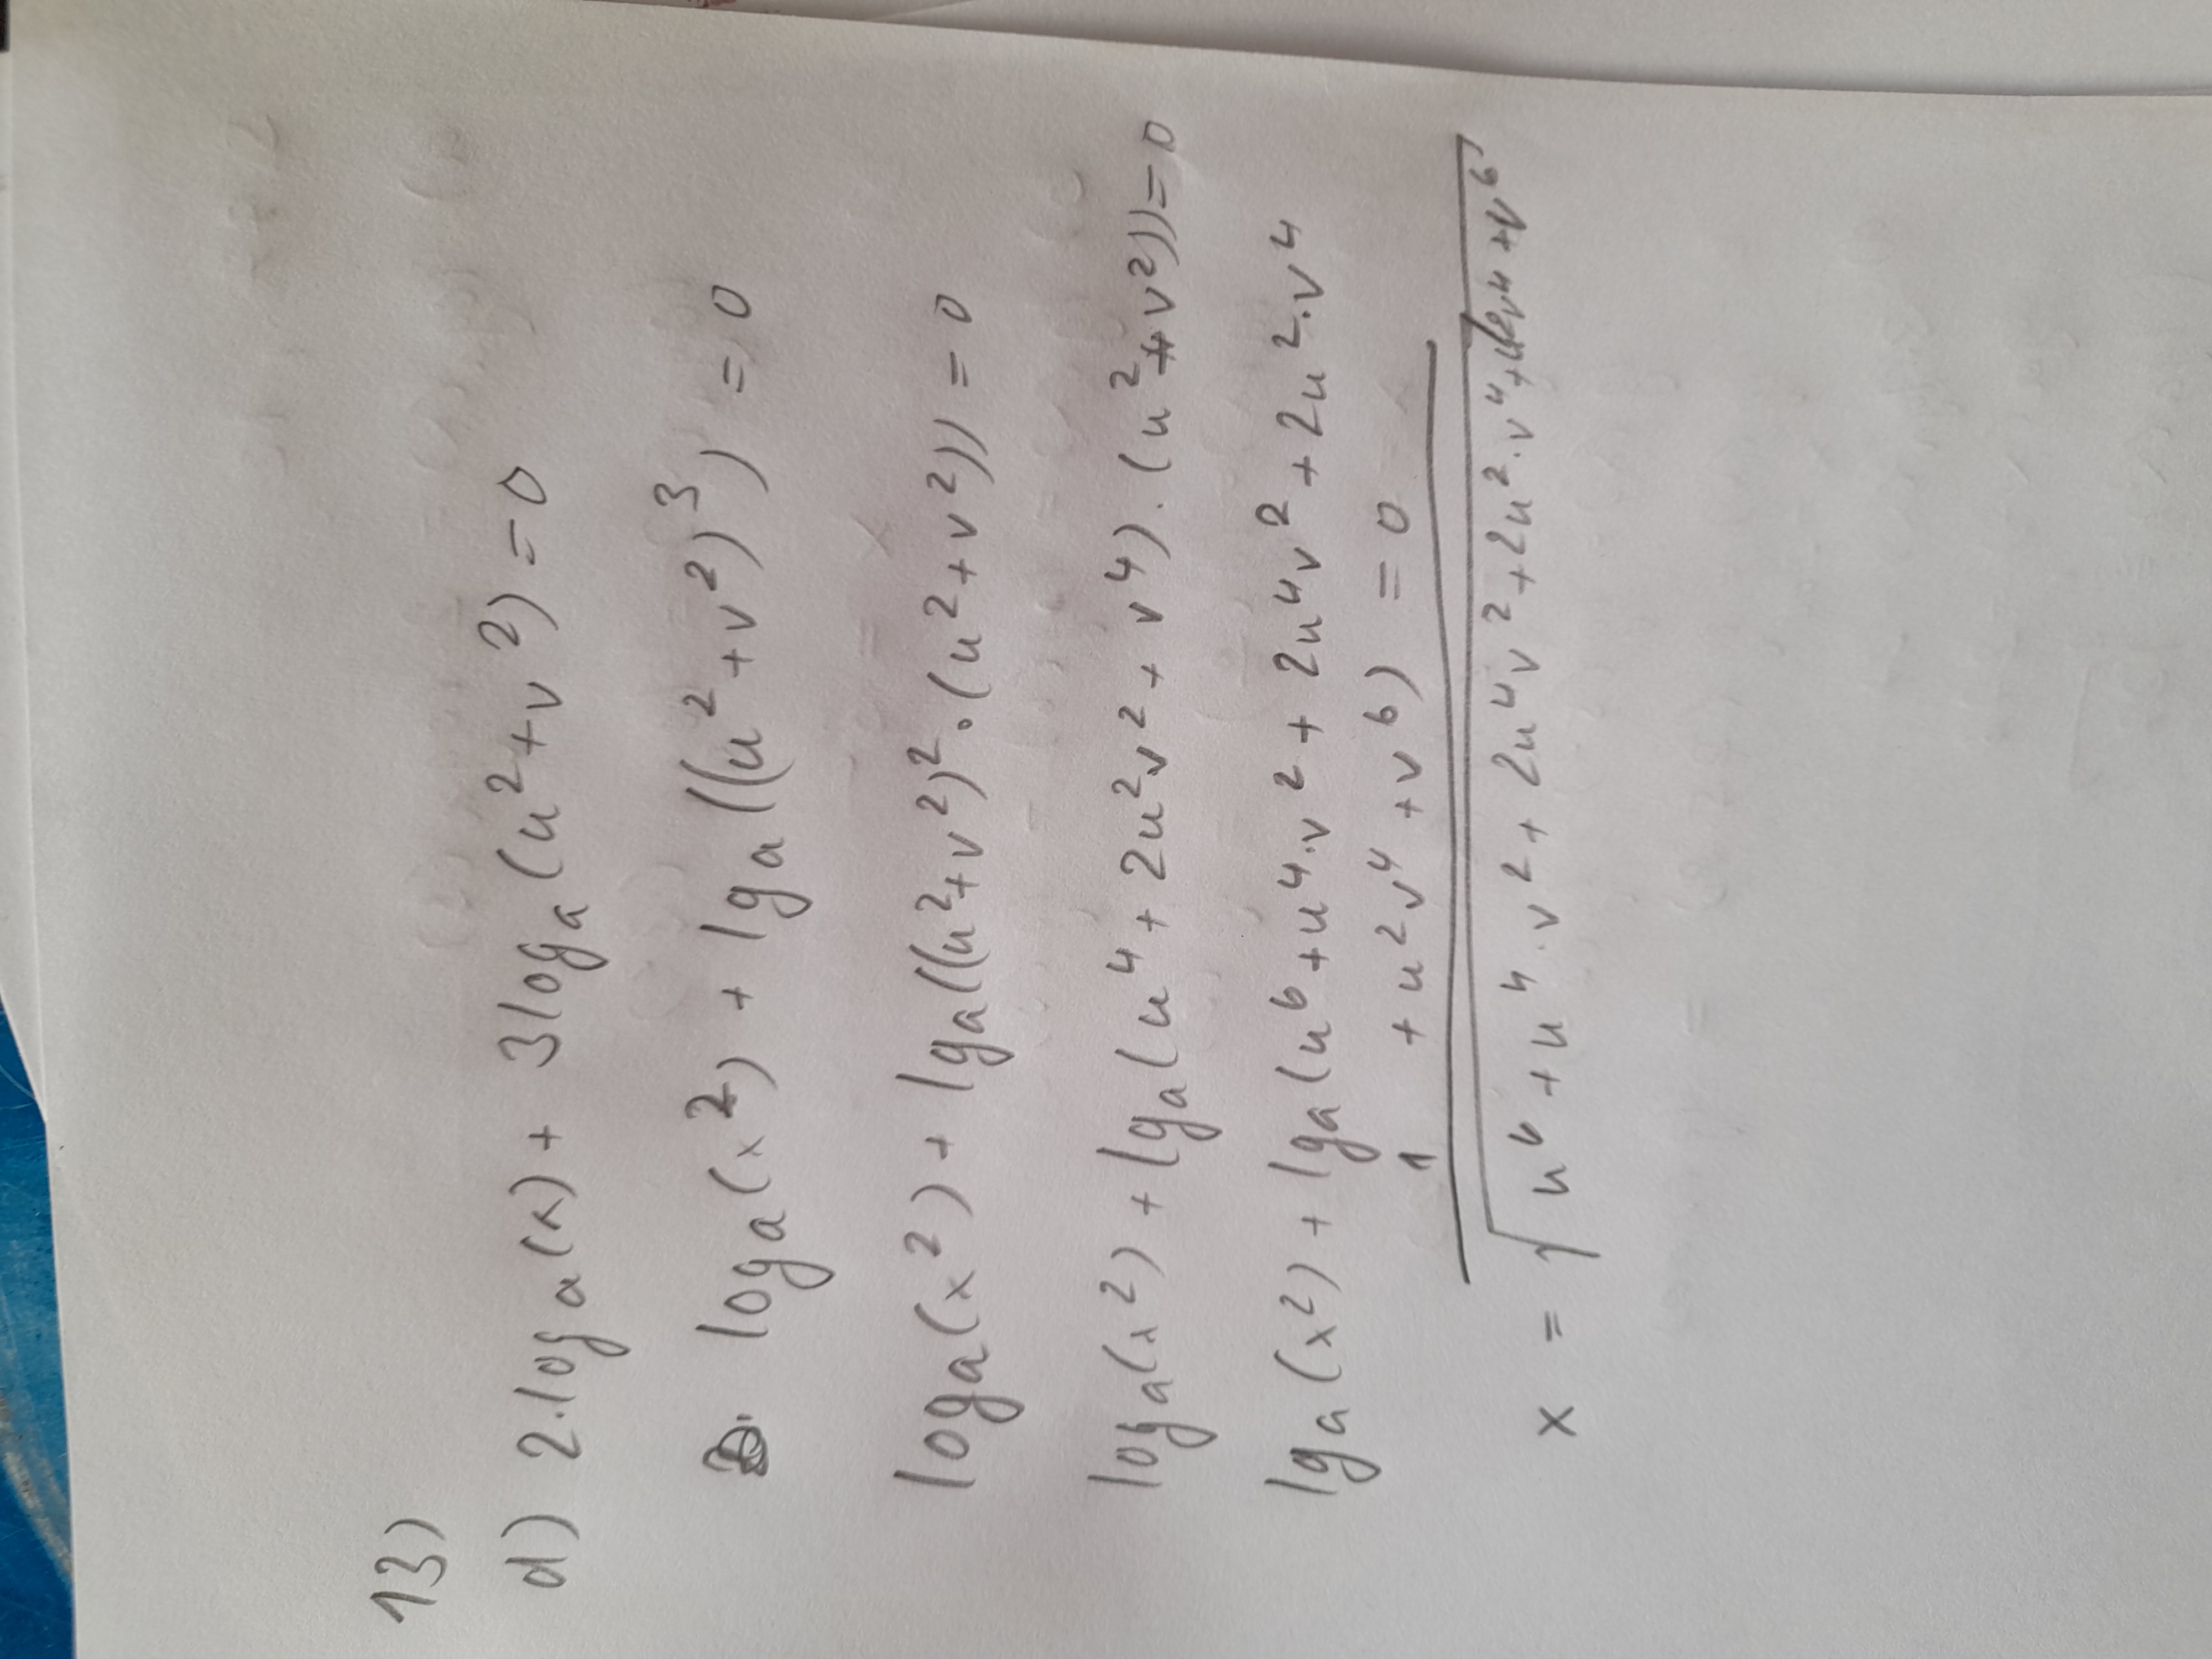 13)
d) 2·log a(x) + 3log a (u²+v²) = 0
log a(x²) + lg a((u²+v²)³) = 0
log a(x²) + lg a((u²+v²)²·(u²+v²)) = 0
log a(x²) + lg a(u⁴ + 2u²v² + v⁴)·(u²+v²)) = 0
lg a(x²) + lg a(u⁶+u⁴·v² + 2u⁴v² + 2u²·v⁴
+ u²v⁴ + v⁶) = 0
1
x = √u⁶ + u⁴·v² + 2u⁴v² + 2u²·v⁴ + u²v⁴ + v⁶